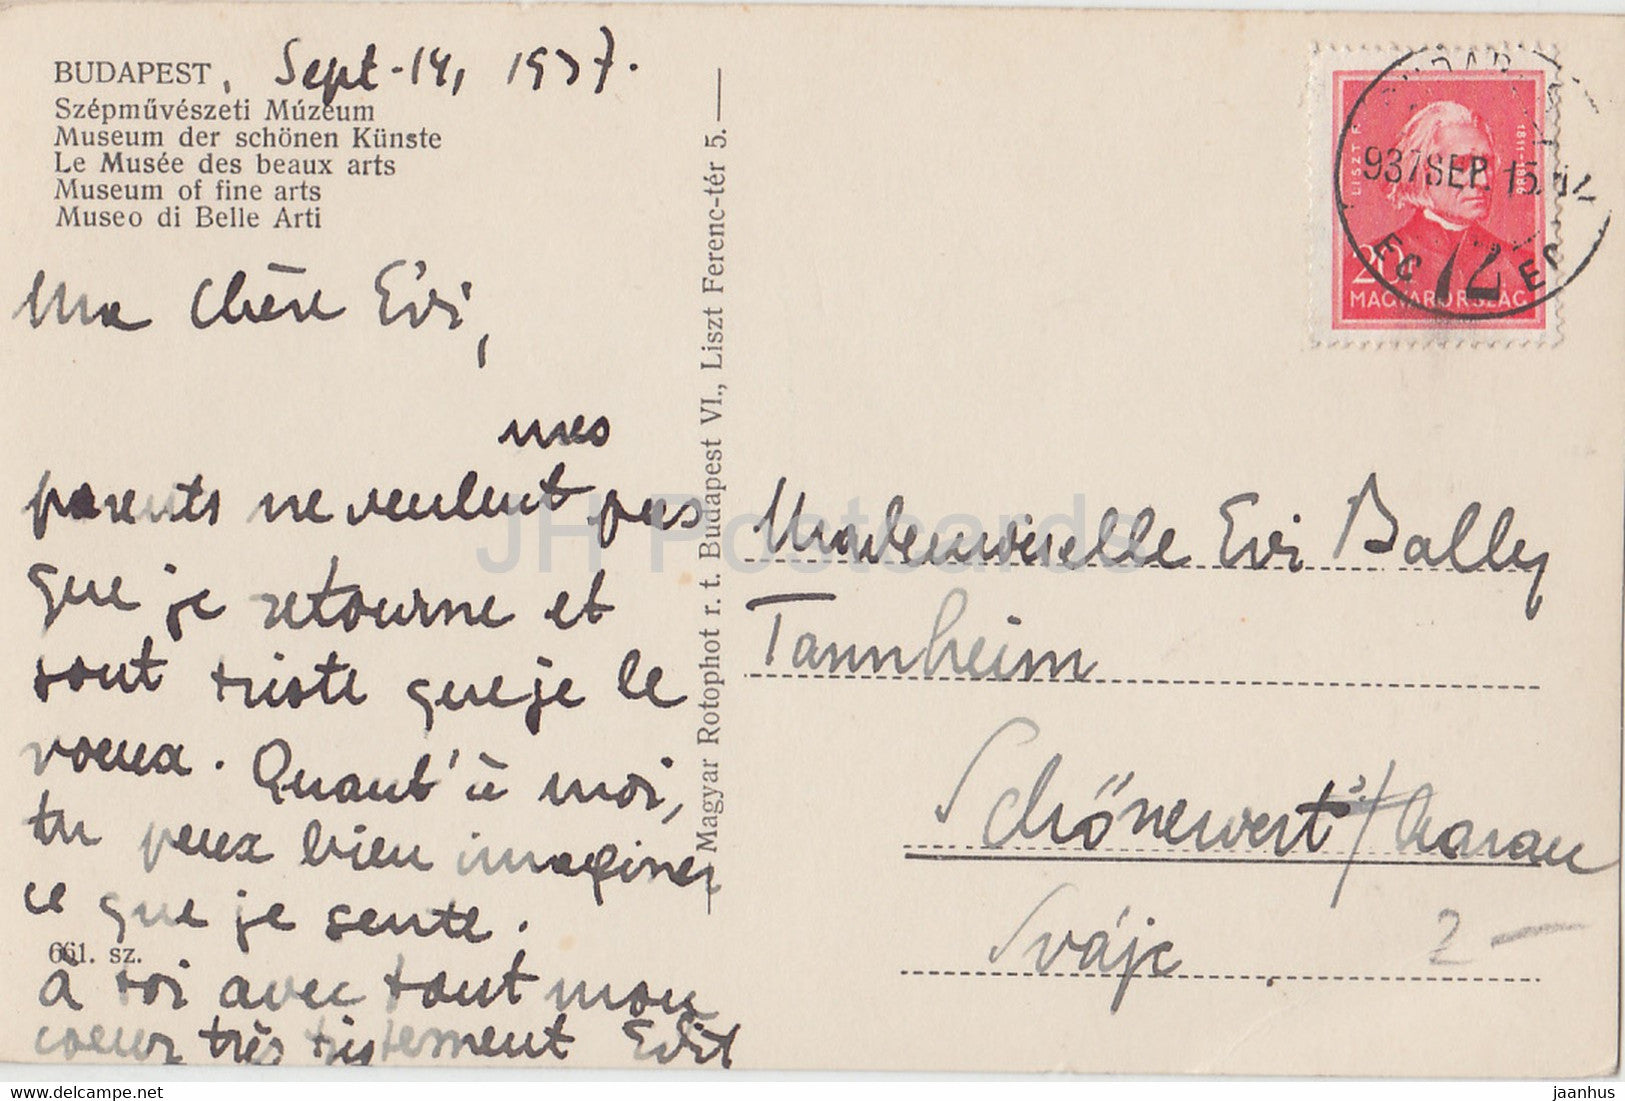 BUDAPEST, Sept-14, 1937.
Szépművészeti Múzeum
Museum der schönen Künste
Le Musée des beaux arts
Museum of fine arts
Museo di Belle Arti
Ma Chère Évi,
mes
parents ne veulent pas
que je retourne et
sont triste que je le
veux. Quant'à moi,
tu peux bien imaginer
ce que je sente.
661. sz.
à toi avec tout mon
coeur très tristement Edit
Magyar Rotophot r. t. Budapest VI., Liszt Ferenc-tér 5.
LISZT F.
1811-1886
20
MAGYARORSZÁG
937 SEP. 15.
72
Mademoiselle Evi Bally
Tannheim
Schönenwert / Aarau
Svájc
2 —
JH Postcards
www.delcampe.net
jaanhus